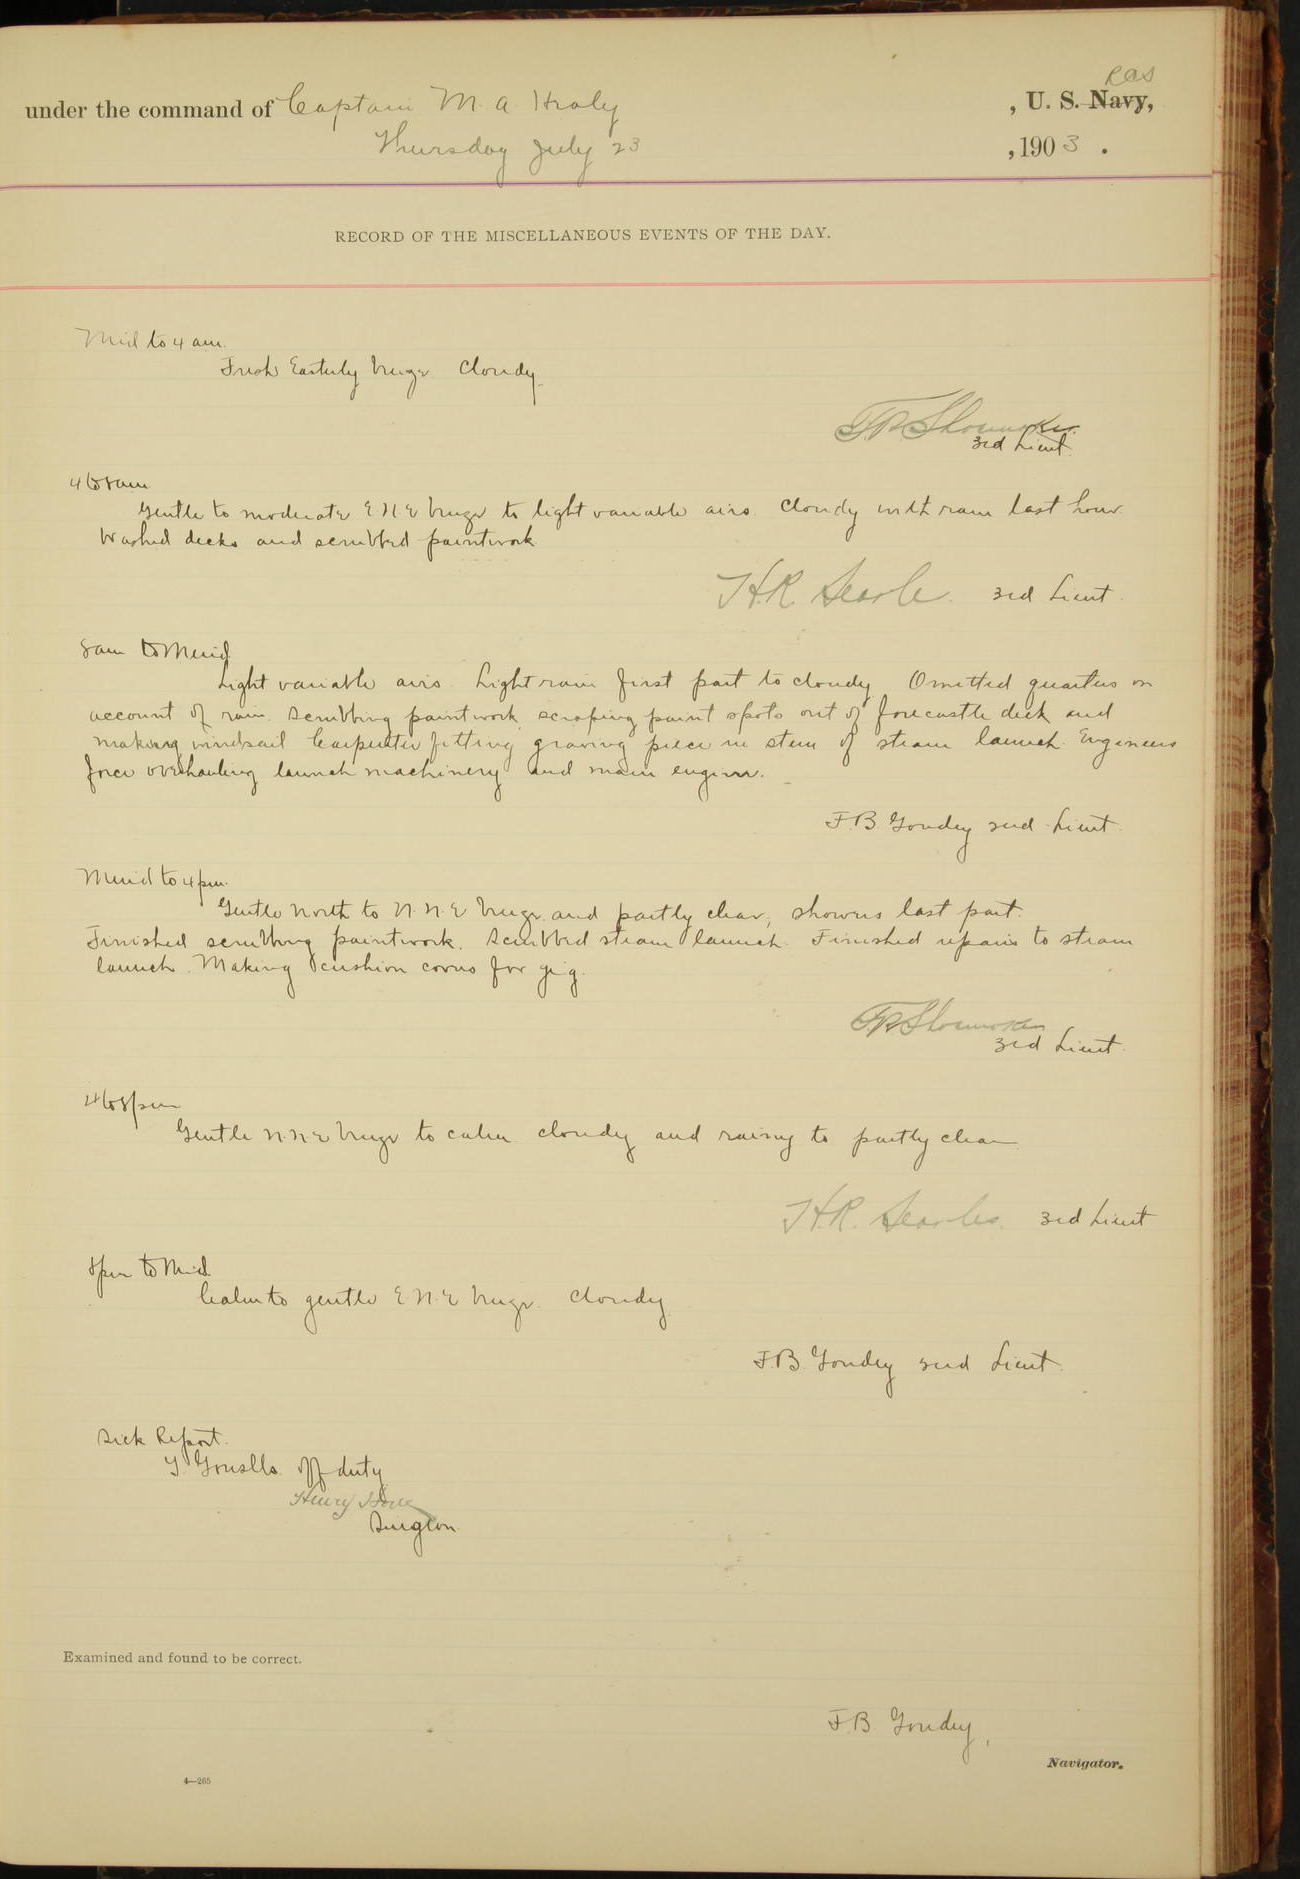 RCS
under the command of Captain M. A. Healy , U. S. Navy,
Thursday July 23 , 1903 .
RECORD OF THE MISCELLANEOUS EVENTS OF THE DAY.
Mid to 4 am.
Fresh Easterly breeze Cloudy.
3rd Lieut.
4 to 8 am
Gentle to moderate E N E breeze to light variable airs. Cloudy with rain last hour.
Washed decks and scrubbed paintwork
H.R. Searle. 3rd Lieut.
8 am to Merid
Light variable airs. Light rain first part to cloudy Omitted quarters on
account of rain. Scrubbing paintwork, scraping paint spots out of forecastle deck and
making windsail Carpenter fitting graving piece in stem of steam launch. Engineers
force overhauling launch machinery and main engine.
F.B. Goudey 2nd Lieut.
Merid to 4 pm.
Gentle North to N.N.E breeze and partly clear, showers last part.
Finished scrubbing paintwork. Scrubbed steam launch. Finished repairs to steam
launch. Making cushion covers for gig.
3rd Lieut.
4 to 8 pm
Gentle N N E breeze to calm cloudy and rainy to partly clear
H.R. Searles. 3rd Lieut
8 pm to Mid
Calm to gentle E N.E breeze. Cloudy.
F.B. Goudey 2nd Lieut.
Sick Report.
off duty
Henry
Surgeon.
Examined and found to be correct.
F.B. Goudey,
Navigator.
4—265